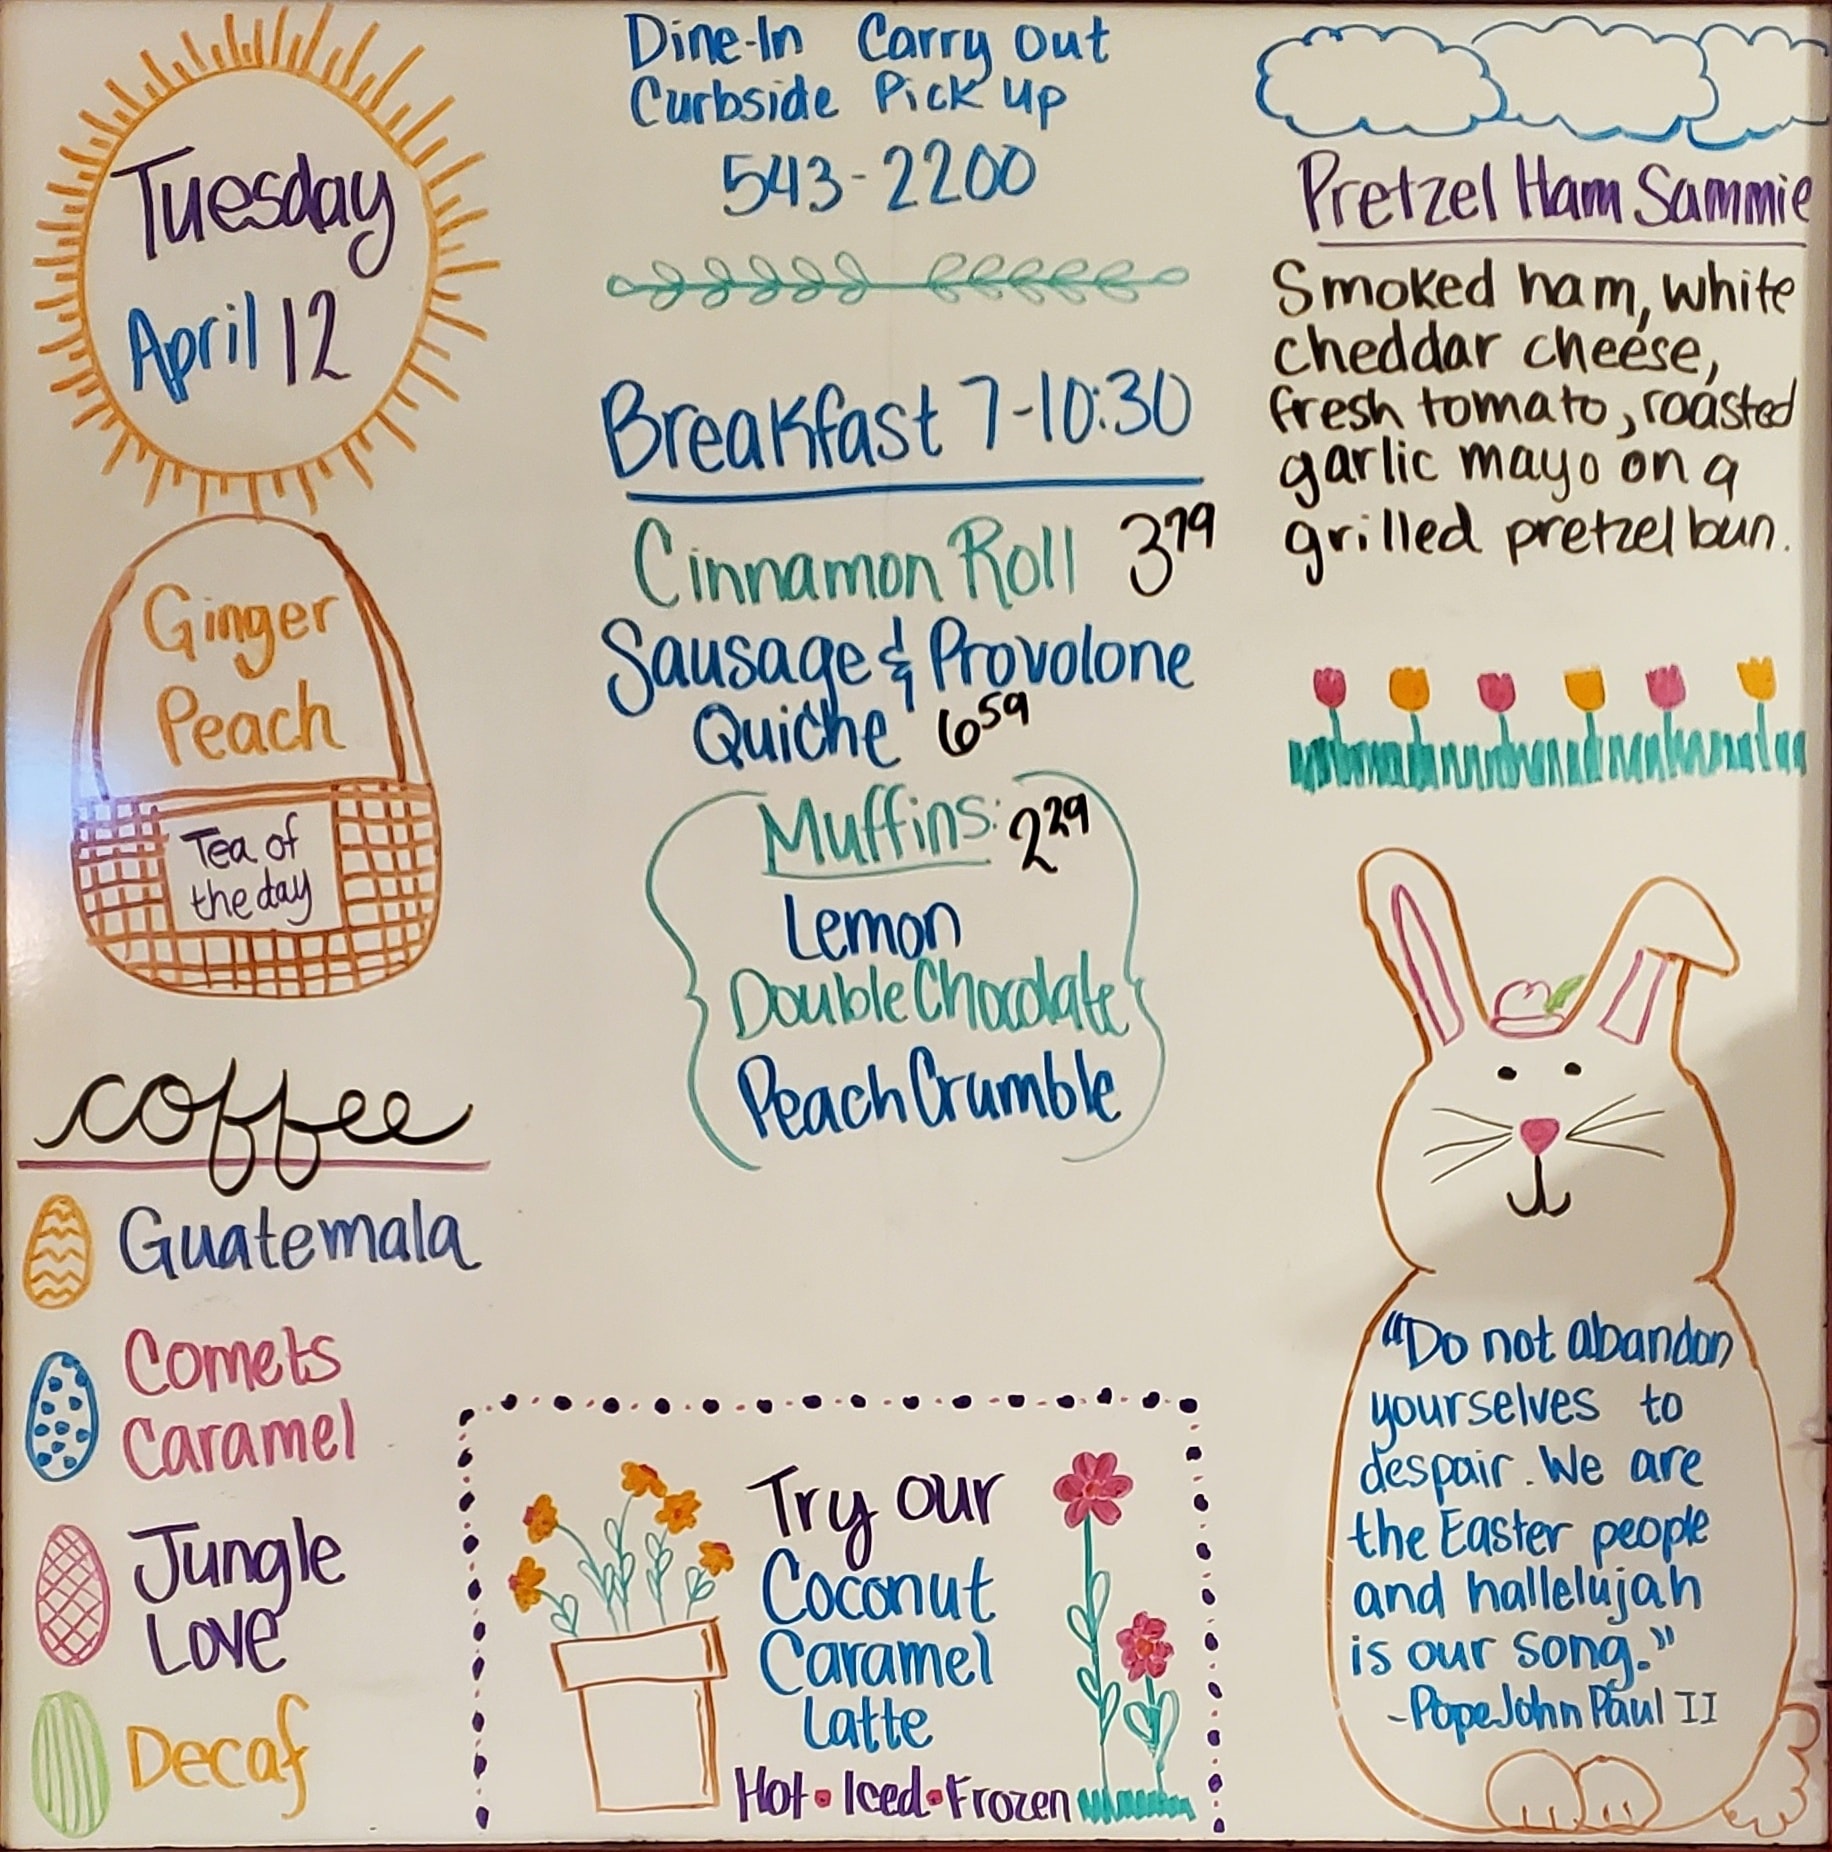 Tuesday
April 12
Ginger
Peach
Tea of
the day
coffee
Guatemala
Comets
Caramel
Jungle
Love
Decaf
Dine-In Carry Out
Curbside Pick Up
543-2200
Breakfast 7-10:30
Cinnamon Roll 3.79
Sausage & Provolone
Quiche 6.59
Muffins: 2.29
Lemon
Double Chocolate
Peach Crumble
Try our
Coconut
Caramel
Latte
Hot • Iced • Frozen
Pretzel Ham Sammie
Smoked ham, white
cheddar cheese,
fresh tomato, roasted
garlic mayo on a
grilled pretzel bun.
"Do not abandon
yourselves to
despair. We are
the Easter people
and hallelujah
is our song."
-Pope John Paul II